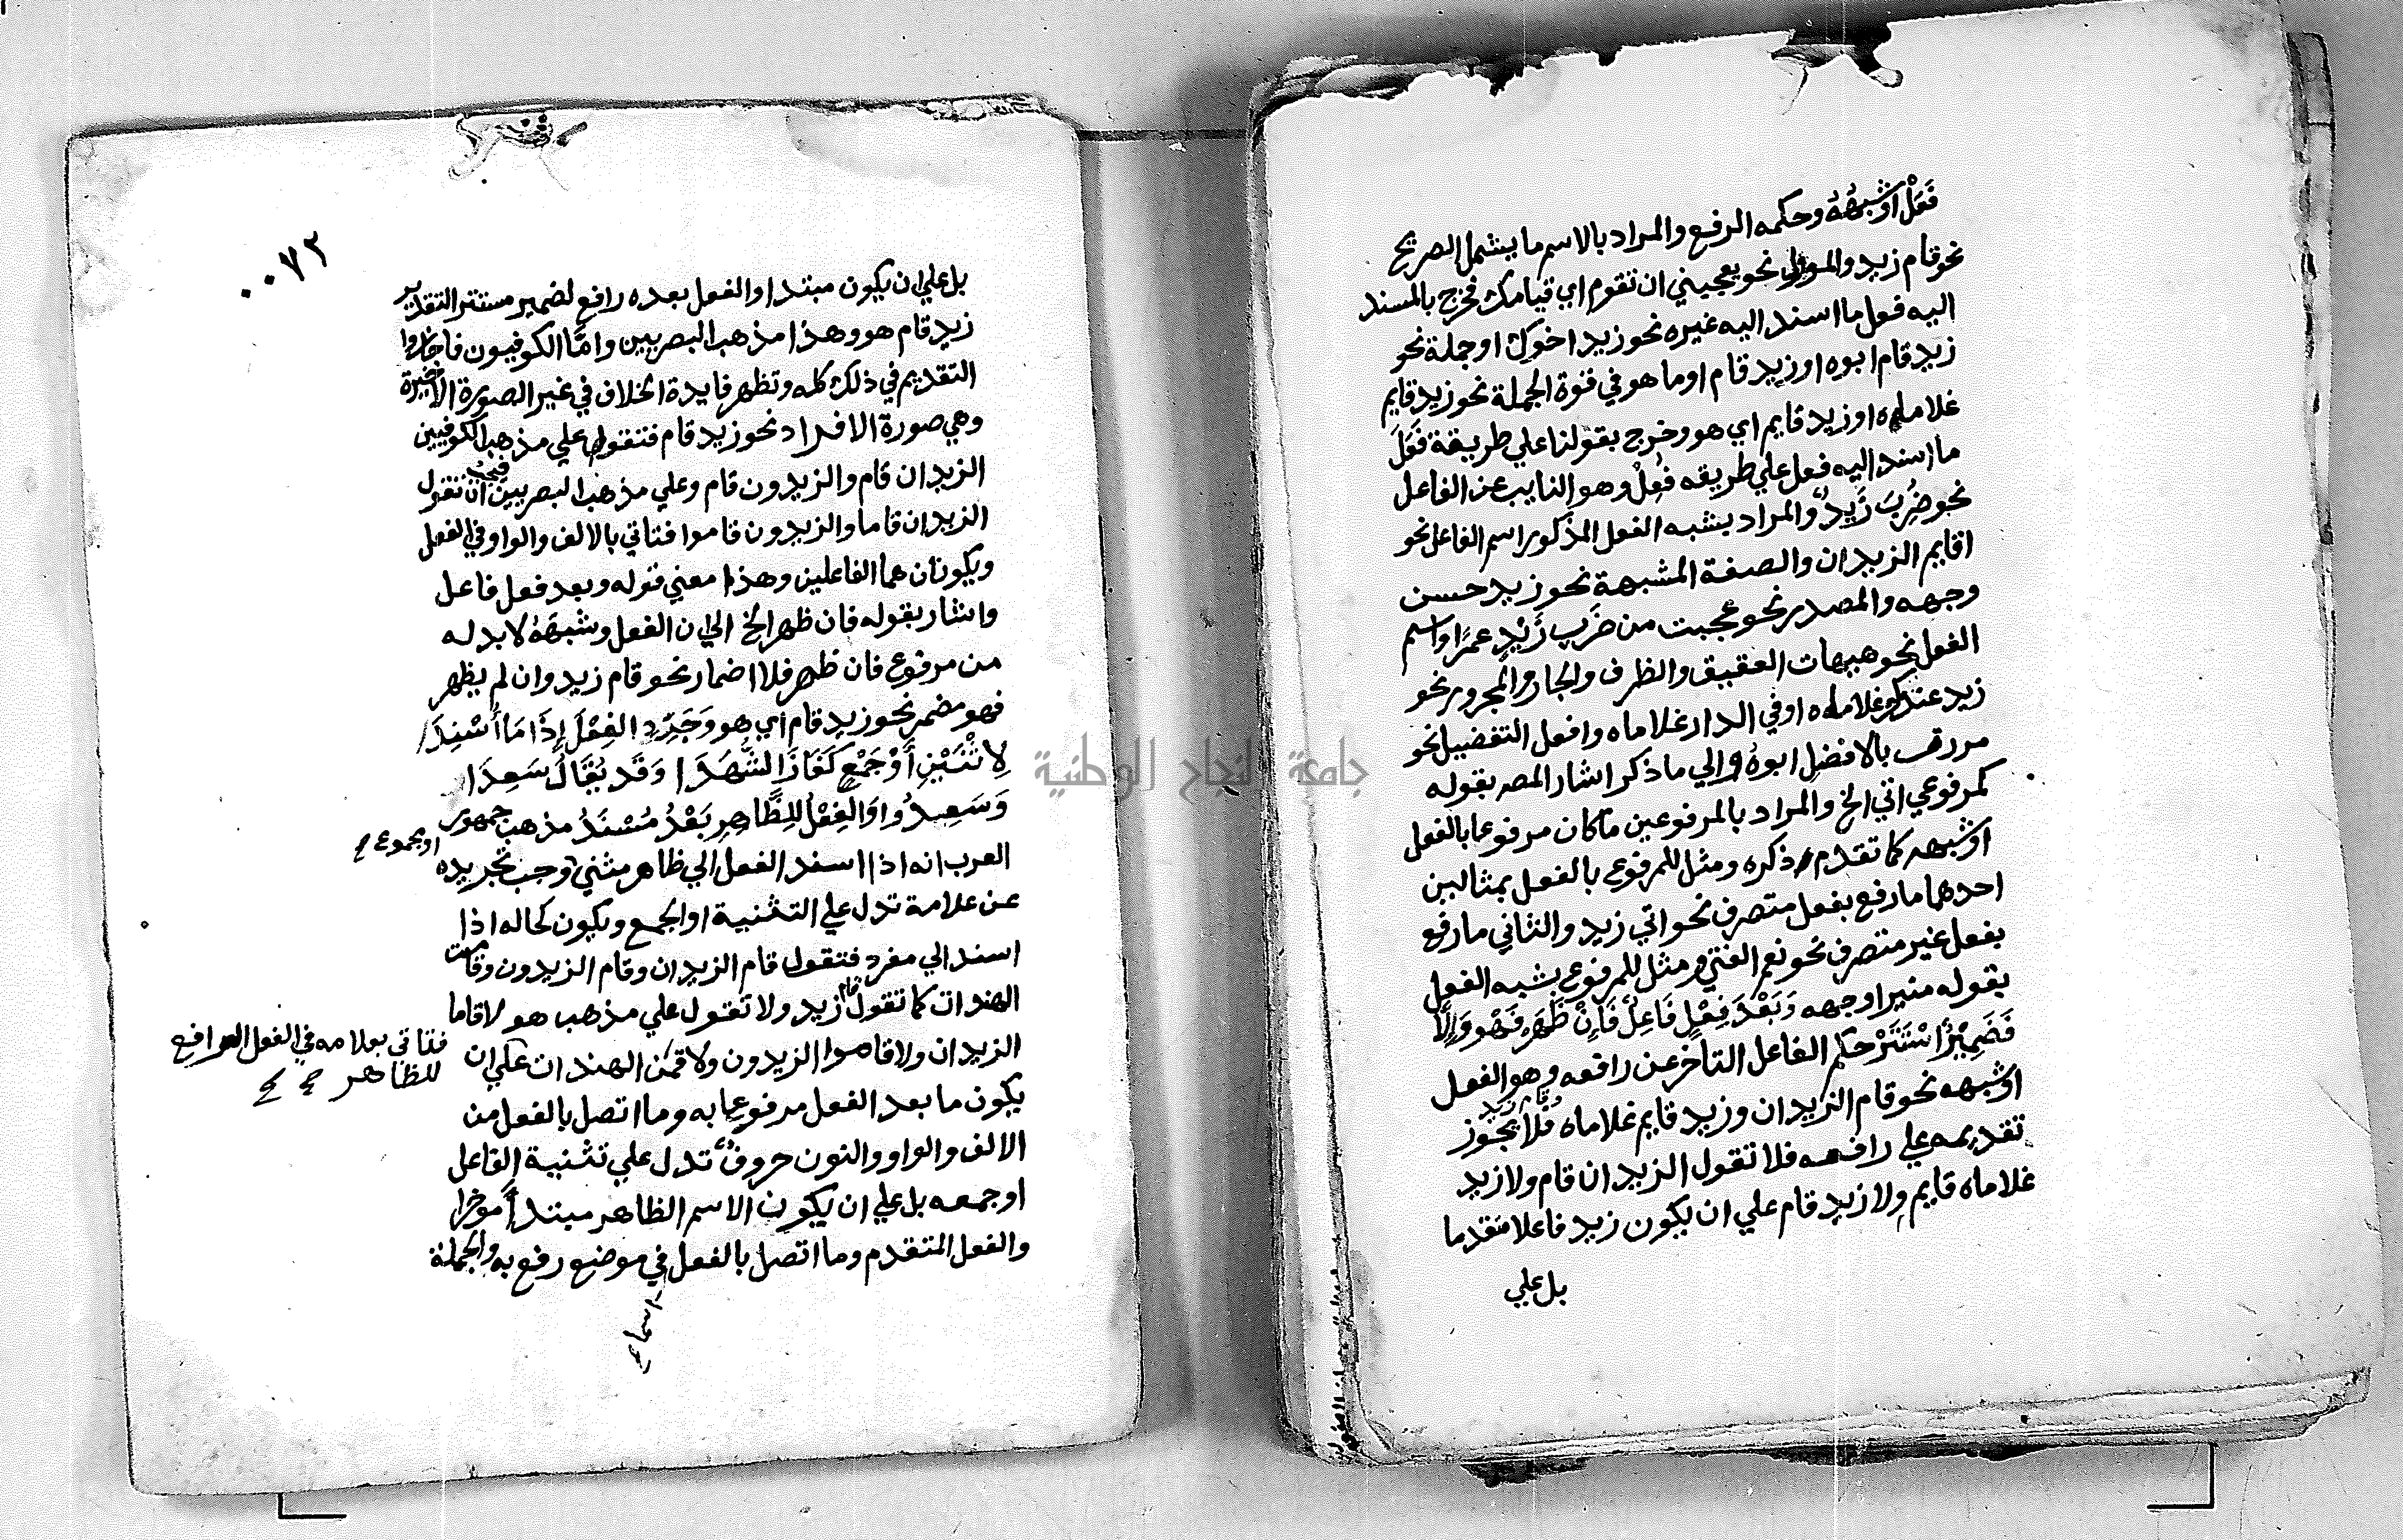 فَعَلَ اوشبهُهُ وحكمه الرفع والمراد بالاسم ما يشمل الصريح
نحو قام زيد والموول نحو يعجبني ان تقوم اي قيامك فخرج بالمسند
اليه فعل ما اسند اليه غيره نحو زيد اخوك او جملة نحو
زيد قام ابوه او زيد قام او ما هو في قوة الجملة نحو زيد قايم
غلامه او زيد قايم اي هو وخرج بقولنا علي طريقة فَعَلَ
ما اسند اليه فعل علي طريقه فُعِلَ وهو النايب عن الفاعل
نحو ضُرِبَ زَيدٌ والمراد بشبه الفعل المذكور اسم الفاعل نحو
اقايم الزيدان والصفة المشبهة نحو زيد حسن
وجهه والمصدر نحو عجبت من ضَربِ زَيْدٍ عمرًا واسم
الفعل نحو هيهات العقيق والظرف والجار والمجرور نحو
زيد عندك غلامه او في الدار غلاماه وافعل التفضيل نحو
مررت بالافضل ابوهُ والي ما ذكر اشار المصر بقوله
كمرفوعي اتي الخ والمراد بالمرفوعين ما كان مرفوعا بالفعل
اوشبهه كما تقدم ذكره ومثل للمرفوع بالفعل بمثالين
احدهما ما رفع بفعل متصرف نحو اتي زيد والثاني ما رفع
بفعل غير متصرف نحو نعم الفتي ومثل للمرفوع بشبه الفعل
بقوله منيرا وجهه وَبَعْدَ فِعْلٍ فَاعِلٌ فَاِنْ ظَهَر فَهْو وَاِلَّا
فَضَمِيْرٌ اسْتَتَرْ حكم الفاعل التأخر عن رافعه وهو الفعل
اوشبهه نحو قام الزيدان وزيد قايم غلاماه وقام زيد فلا يجوز
تقديمه علي رافعه فلا تقول الزيدان قام ولا زيد
غلاماه قايم ولا زيد قام علي ان يكون زيد فاعلا مقدما
بل علي
٠٠٧٢
بل علي ان يكون مبتدا والفعل بعده رافع لضمير مستتر التقدير
زيد قام هو وهذا مذهب البصريين وامَّا الكوفيون فاجازوا
التقديم في ذلك كله وتظهر فايدة الخلاف في غير الصورة الاخيرة
وهي صورة الافراد نحو زيد قام فتقول علي مذهب الكوفيين
الزيدان قام والزيدون قام وعلي مذهب البصريين فيجب ان تقول
الزيدان قاما والزيدون قاموا فتاتي بالالف والواو في الفعل
ويكونان هما الفاعلين وهذا معني قوله وبعد فعل فاعل
واشار بقوله فان ظهر الخ الي ان الفعل وشبهَهُ لا بد له
من مرفوع فان ظهر فلا اضمار نحو قام زيد وان لم يظهر
فهو مضمر نحو زيد قام اي هو وَجَرِّدِ الفِعْلَ إِذَا مَا أُسْنِدَا
لِاثْنَيْنِ أَوْ جَمْعٍ كَفَازَ الشُّهَدَا وَقَد يُقَالُ سَعِدَا
وَسَعِدُوا وَالْفِعْلُ لِلظَّاهِرِ بَعْدُ مُسْنَدُ مذهب جمهور
العرب انه اذا اسند الفعل الي ظاهر مثني وجب تجريده
او مجموع
عن علامة تدل علي التثنية او الجمع ويكون كحاله اذا
اسند الي مفرد فتقول قام الزيدان وقام الزيدون وقامت
الهندات كما تقول قام زيد ولا تقول علي مذهب هولا قاما
الزيدان ولا قاموا الزيدون ولا قمن الهندات علي ان
فتاتي بعلامه في الفعل الرافع
للظاهر
يكون ما بعد الفعل مرفوعا به وما اتصل بالفعل من
الالف والواو والنون حروفٌ تدل علي تثنية الفاعل
او جمعه بل علي ان يكون الاسم الظاهر مبتدأً موخرا
والفعل المتقدم وما اتصل بالفعل في موضع رفع به والجملة
جامعة النجاح الوطنية